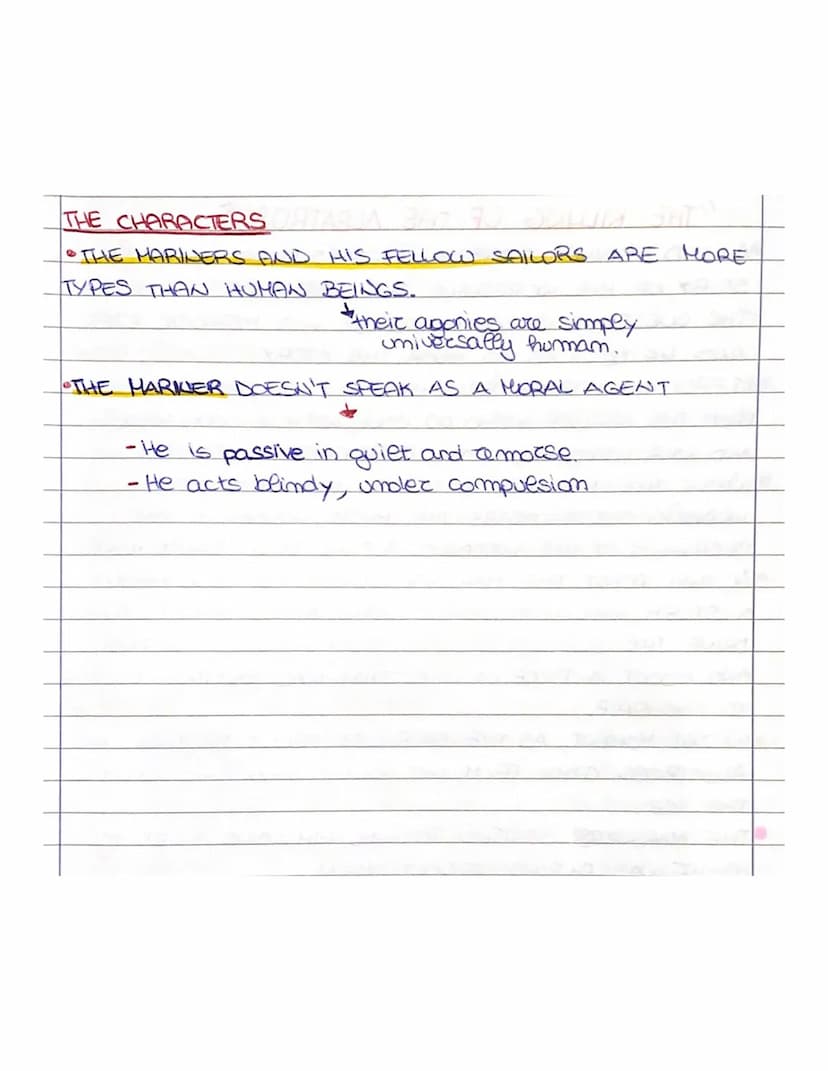 THE CHARACTERS
• THE MARINERS AND HIS FELLOW SAILORS ARE MORE
TYPES THAN HUMAN BEINGS.
their agonies are simply
universally human.
• THE MARINER DOESN'T SPEAK AS A MORAL AGENT
- He is passive in quiet and remorse.
- He acts blindy, under compulsion